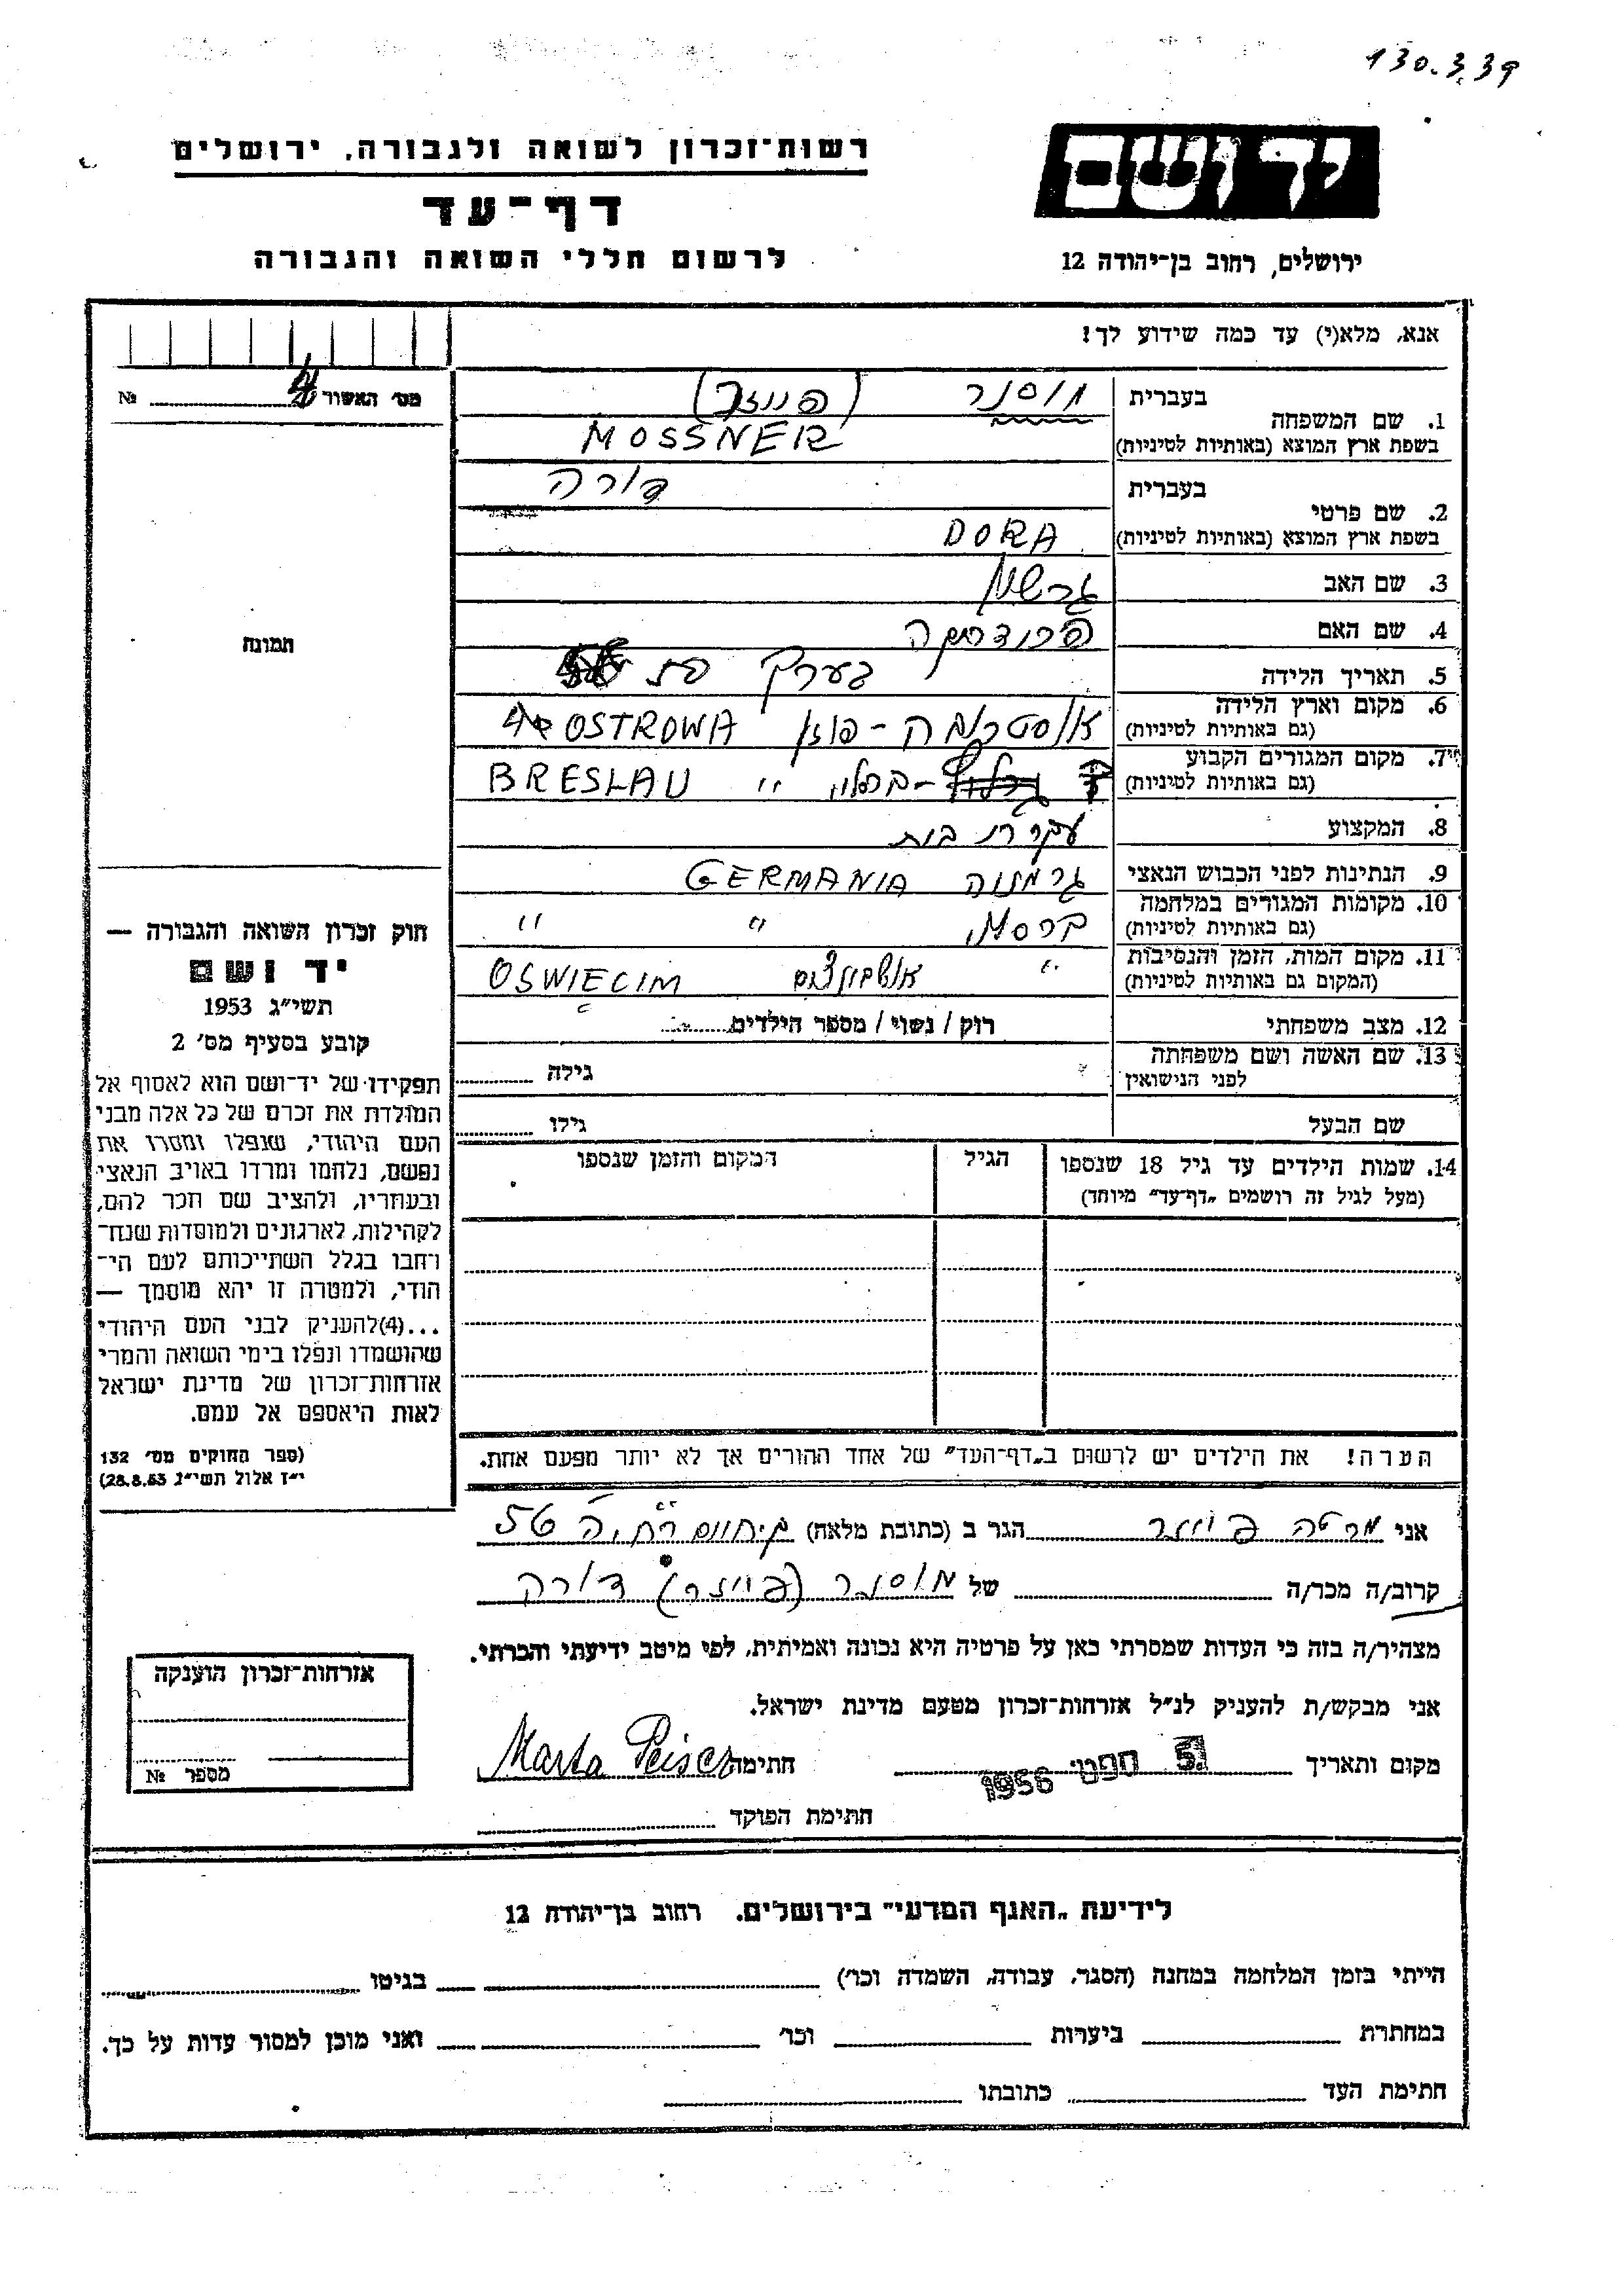 130.3.39
יד ושם
רשות־זכרון לשואה ולגבורה, ירושלים
דף־עד
לרשום חללי השואה והגבורה
ירושלים, רחוב בן־יהודה 12
אנא, מלא(י) עד כמה שידוע לך!
מס׳ האשור № 4
1. שם המשפחה
בעברית מוסנר (פייזר)
בשפת ארץ המוצא (באותיות לטיניות) MOSSNER
2. שם פרטי
בעברית דורה
בשפת ארץ המוצא (באותיות לטיניות) DORA
3. שם האב גרשון
4. שם האם
5. תאריך הלידה בערך בת
6. מקום וארץ הלידה
(גם באותיות לטיניות) אוסטרובה - פוזן OSTROWA
7. מקום המגורים הקבוע
(גם באותיות לטיניות) ברסלוי " BRESLAU
8. המקצוע עקרת בית
9. הנתינות לפני הכבוש הנאצי גרמניה GERMANIA
10. מקומות המגורים במלחמה
(גם באותיות לטיניות) " "
11. מקום המות, הזמן והנסיבות
(המקום גם באותיות לטיניות) " אושביצים OSWIECIM
12. מצב משפחתי רוק / נשוי / מספר הילדים
13. שם האשה ושם משפחתה
לפני הנישואין גילה
שם הבעל גילו
14. שמות הילדים עד גיל 18 שנספו
(מעל לגיל זה רושמים „דף־עד" מיוחד)
הגיל
המקום והזמן שנספו
הערה! את הילדים יש לרשום ב„דף־העד" של אחד ההורים אך לא יותר מפעם אחת.
תמונה
חוק זכרון השואה והגבורה —
יד ושם
תשי״ג 1953
קובע בסעיף מס׳ 2
תפקידו של יד־ושם הוא לאסוף אל
המולדת את זכרם של כל אלה מבני
העם היהודי, שנפלו ומסרו את
נפשם, נלחמו ומרדו באויב הנאצי
ובעוזריו, ולהציב שם וזכר להם,
לקהילות, לארגונים ולמוסדות שנח־
רבו בגלל השתייכותם לעם הי־
הודי, ולמטרה זו יהא מוסמך —
...(4)להעניק לבני העם היהודי
שהושמדו ונפלו בימי השואה והמרי
אזרחות־זכרון של מדינת ישראל
לאות היאספם אל עמם.
(ספר החוקים מס׳ 132
י״ז אלול תשי״ג 28.8.53)
אני מרטה פייזר הגר ב (כתובת מלאה) 56
קרוב/ה מכר/ה של מוסנר (פייזר) דורה
מצהיר/ה בזה כי העדות שמסרתי כאן על פרטיה היא נכונה ואמיתית, לפי מיטב ידיעתי והכרתי.
אני מבקש/ת להעניק לנ״ל אזרחות־זכרון מטעם מדינת ישראל.
מקום ותאריך 5. ספט׳ 1956 חתימה Marta Peiser
חתימת הפוקד
אזרחות־זכרון הוענקה
מספר №
לידיעת „האגף המדעי" בירושלים. רחוב בן־יהודה 12
הייתי בזמן המלחמה במחנה (הסגר, עבודה, השמדה וכו׳) בגיטו
במחתרת ביערות וכו׳ ואני מוכן למסור עדות על כך.
חתימת העד כתובתו